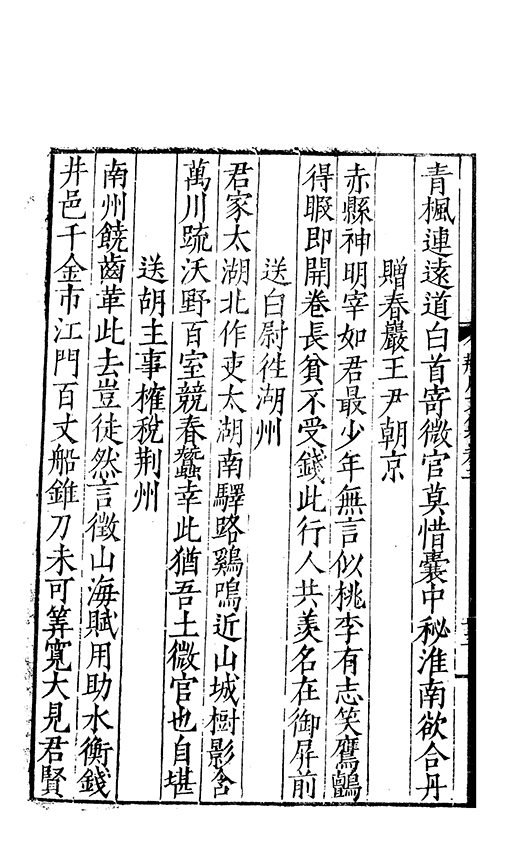 青楓連遠道白首寄微官莫惜囊中秘淮南欲合丹
贈春巖王尹朝京
赤縣神明宰如君最少年無言似桃李有志笑鷹鸇
得暇即開卷長貧不受錢此行人共羨名在御屏前
送白尉徃湖州
君家太湖北作吏太湖南驛路鷄鳴近山城樹影含
萬川疏沃野百室競春蠶幸此猶吾土微官也自堪
送胡主事榷稅荆州
南州饒齒革此去豈徒然言徵山海賦用助水衡錢
井邑千金市江門百丈船錐刀未可筭寬大見君賢